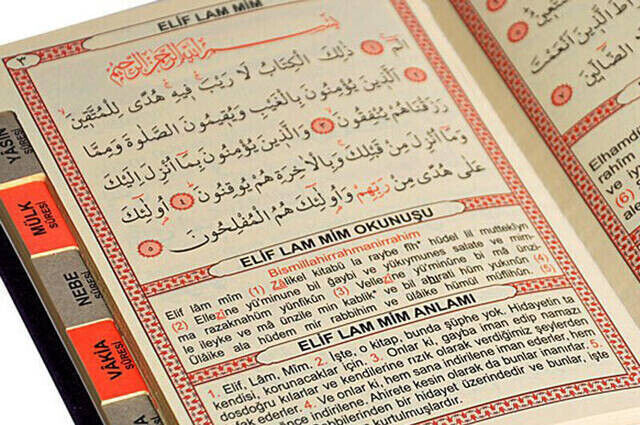 ELİF LAM MİM
٣
بسم الله الرحمن الرحيم
الٓمٓ ١ ذٰلِكَ الْكِتَابُ لَا رَيْبَ فِيهِ هُدًى لِلْمُتَّقِينَ
٢ اَلَّذِينَ يُؤْمِنُونَ بِالْغَيْبِ وَيُقِيمُونَ الصَّلٰوةَ وَمِمَّا
رَزَقْنَاهُمْ يُنْفِقُونَ ٣ وَالَّذِينَ يُؤْمِنُونَ بِمَا اُنْزِلَ اِلَيْكَ
وَمَا اُنْزِلَ مِنْ قَبْلِكَ وَبِالْاٰخِرَةِ هُمْ يُوقِنُونَ ٤ اُولٰئِكَ
عَلٰى هُدًى مِنْ رَبِّهِمْ وَاُولٰئِكَ هُمُ الْمُفْلِحُونَ
٥
ELİF LAM MİM OKUNUŞU
Bismillahirrahmanirrahim
Elif lâm mîm (1) Zâlikel kitâbü la raybe fîh* hüdel lil muttekîyn
(2) Ellezîne yü'minune bil ğaybi ve yükıymunes salate ve mim-
ma razaknahüm yünfikûn (3) Vellezîne yü'minûne bi mâ ünzi-
le ileyke ve mâ ünzile min kablik* ve bil ahırati hüm yükınûn (4)
Ülâike ala hüdem mir rabbihim ve ülâike hümül müflihûn. (5)
ELİF LAM MİM ANLAMI
1. Elif, Lâm, Mîm. 2. İşte, o kitap, bunda şüphe yok. Hidayetin ta
kendisi, korunacaklar için. 3. Onlar ki, gayba iman edip namazı
dosdoğru kılarlar ve kendilerine rızık olarak verdiğimiz şeylerden
ak ederler. 4. Ve onlar ki, hem sana indirilene iman ederler, hem
önce indirilene. Ahirete kesin olarak da bunlar inanırlar. 5.
Rabblerinden bir hidayet üzerindedir ve bunlar, işte
kurtulmuşlardır.
YASİN
SÛRESİ
MÜLK
SÛRESİ
NEBE
SÛRESİ
VAKIA
SÛRESİ
الَّذِينَ اَنْعَمْتَ
الضَّالِّينَ
Elhamd
rahîm
ve iy
(6)